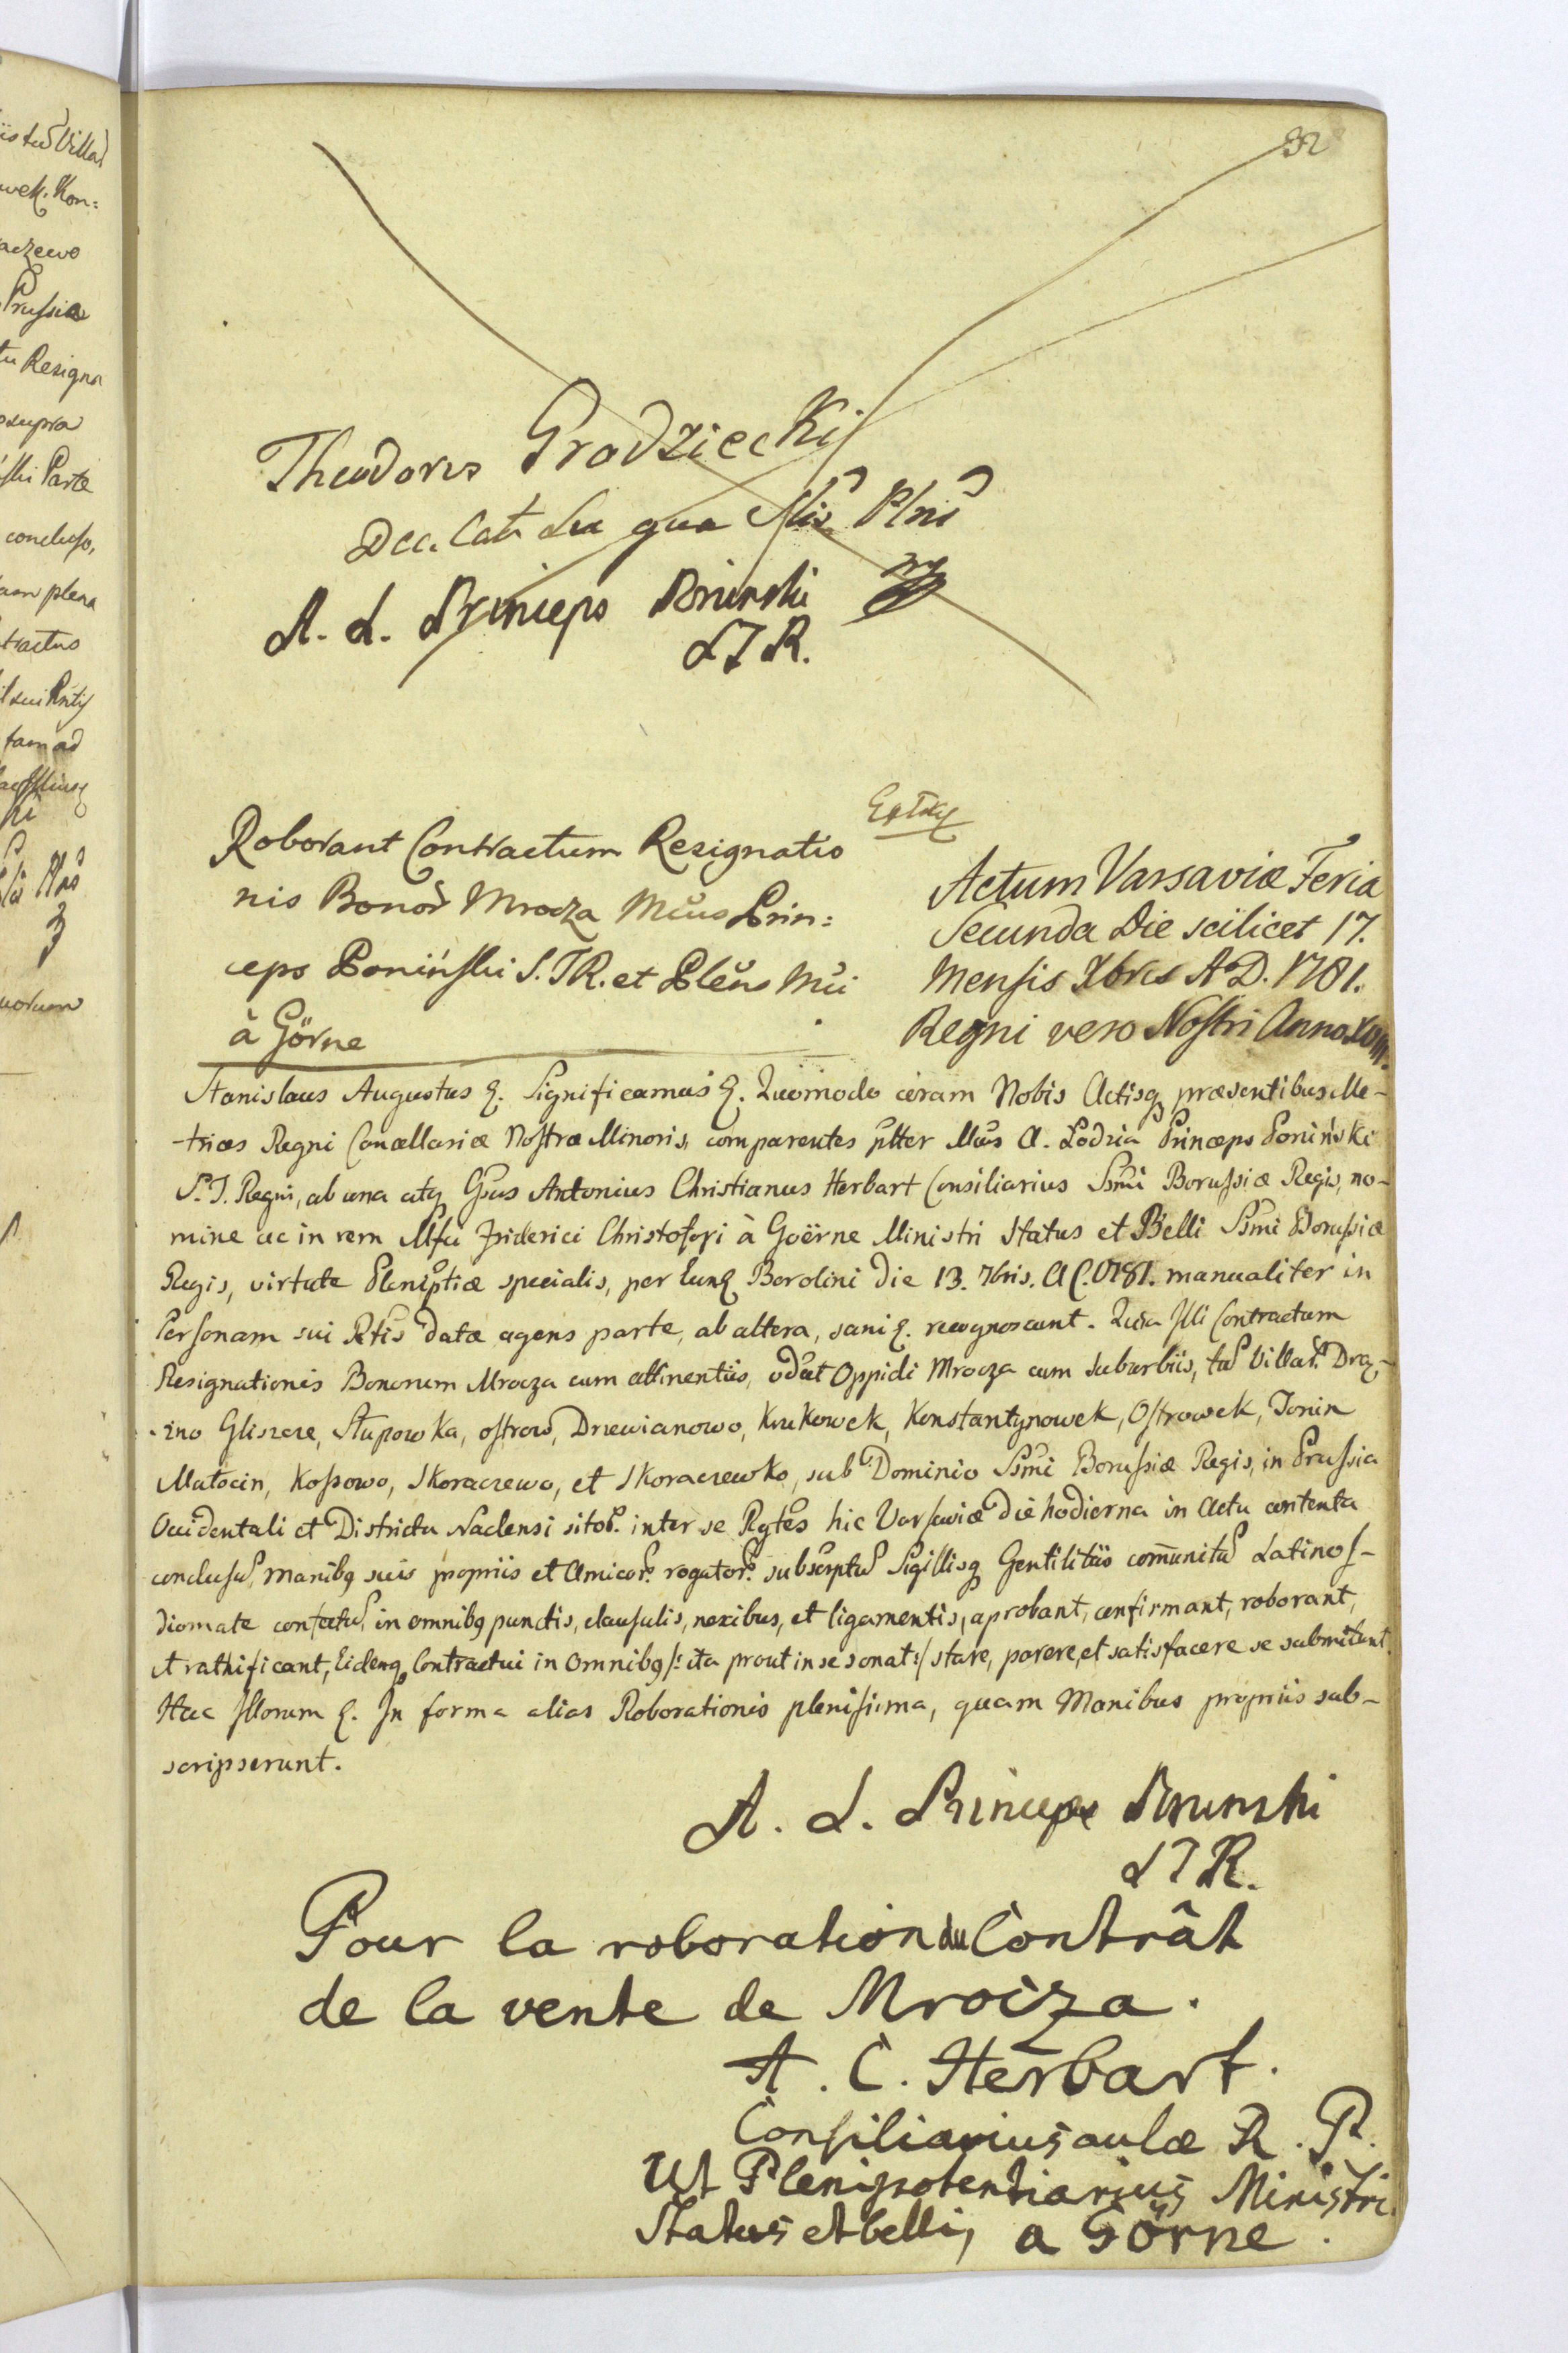 32
Theodorus Grodziecki
Dec. Cat. qua Plnś
A. L. Princeps Poninski
S T R.
Roborant Contractum Resignatio
nis Bonor Mrocza Mcus Prin:
ceps Poniński S. T R. et Plens Mci
à Görne
Actum Varsaviæ Feria
Secunda Die scilicet 17.
Mensis Xbris A D. 1781.
Regni vero Nostri Anno XVIII.
Stanislaus Augustus &. Significamus &. Quomodo coram Nobis Actisq præsentibus Me-
-trices Regni Cancellariæ Nostræ Minoris, comparentes pltter Mcus A. Lodzia Princeps Poniński
S. T. Regni, ab una atq Gsus Antonius Christianus Herbart Consiliarius Ssmi Borussiæ Regis, no-
mine ac in rem Mfci Friderici Christofori à Goërne Ministri Status et Belli Ssmi Borussiæ
Regis, virtute Pleniptiæ specialis, per Eund Berolini Die 13. 7bris. A C. 1781. manualiter in
Personam sui Rtis datæ agens parte, ab altera, sani &. recognoscunt. Quia Illi Contractum
Resignationis Bonorum Mrocza cum attinentiis, vdet Oppidi Mrocza cum suburbiis, tud Villar. Drą-
-zno Gliszcze, Słupowka, ostrow, Drzewianowo, Krukowek, Konstantynowek, Ostrowek, Jonin
Matocin, Kossowo, Skoraczewo, et Skoraczewko, sub Dominio Ssmi Borussiæ Regis, in Prussia
Occidentali et Districtu Naclensi sitor. inter se Rgtes hic Varsaviæ die hodierna in Actu contenta
conclusu, manibq suis propriis et Amicor. rogator. subscriptu Sigillisq Gentilitiis comunitu Latino I-
diomate confectu, in omnibq punctis, clausulis, nexibus, et ligamentis, aprobant, confirmant, roborant,
et rathificant, Eidemq Contractui in Omnibq /: ita prout in se sonat :/ stare, parere, et satisfacere se submittunt
Hac Illorum &. In forma alias Roborationis plenissima, quam Manibus propriis sub-
scripserunt.
A. L. Princeps Poninski
S T R.
Pour la roboration du Contrât
de la vente de Mrocza.
A. C. Herbart.
Consiliarius aulæ R. P.
Ut Plenipotentiarius Ministri
Status et belli, a Görne.